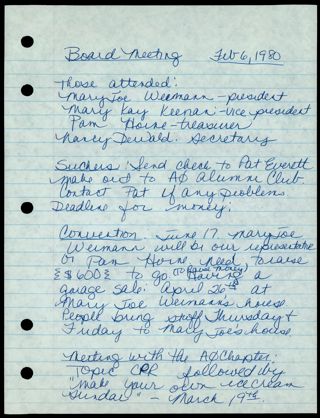 Board Meeting Feb 6, 1980
Those attended:
Mary Joe Weimann - president
Mary Kay Keenan - vice president
Pam Horne - treasurer
Nancy Dewald - Secretary
Suckers! Send check to Pat Everett
make out to AΦ Alumni Club.
Contact Pat if any problems
Deadline for money:
Convention - June 17. Mary Joe
Weimann will be our representative
or Pam Horne. Need to raise
{$600} to go. (to raise money) Having a
garage sale: April 26th at
Mary Joe Weimann's house.
People bring stuff Thursday &
Friday to Mary Joe's house.
Meeting with the AΦ Chapter:
Topic CPR followed by
"make your own ice cream
Sunday" - March 19th